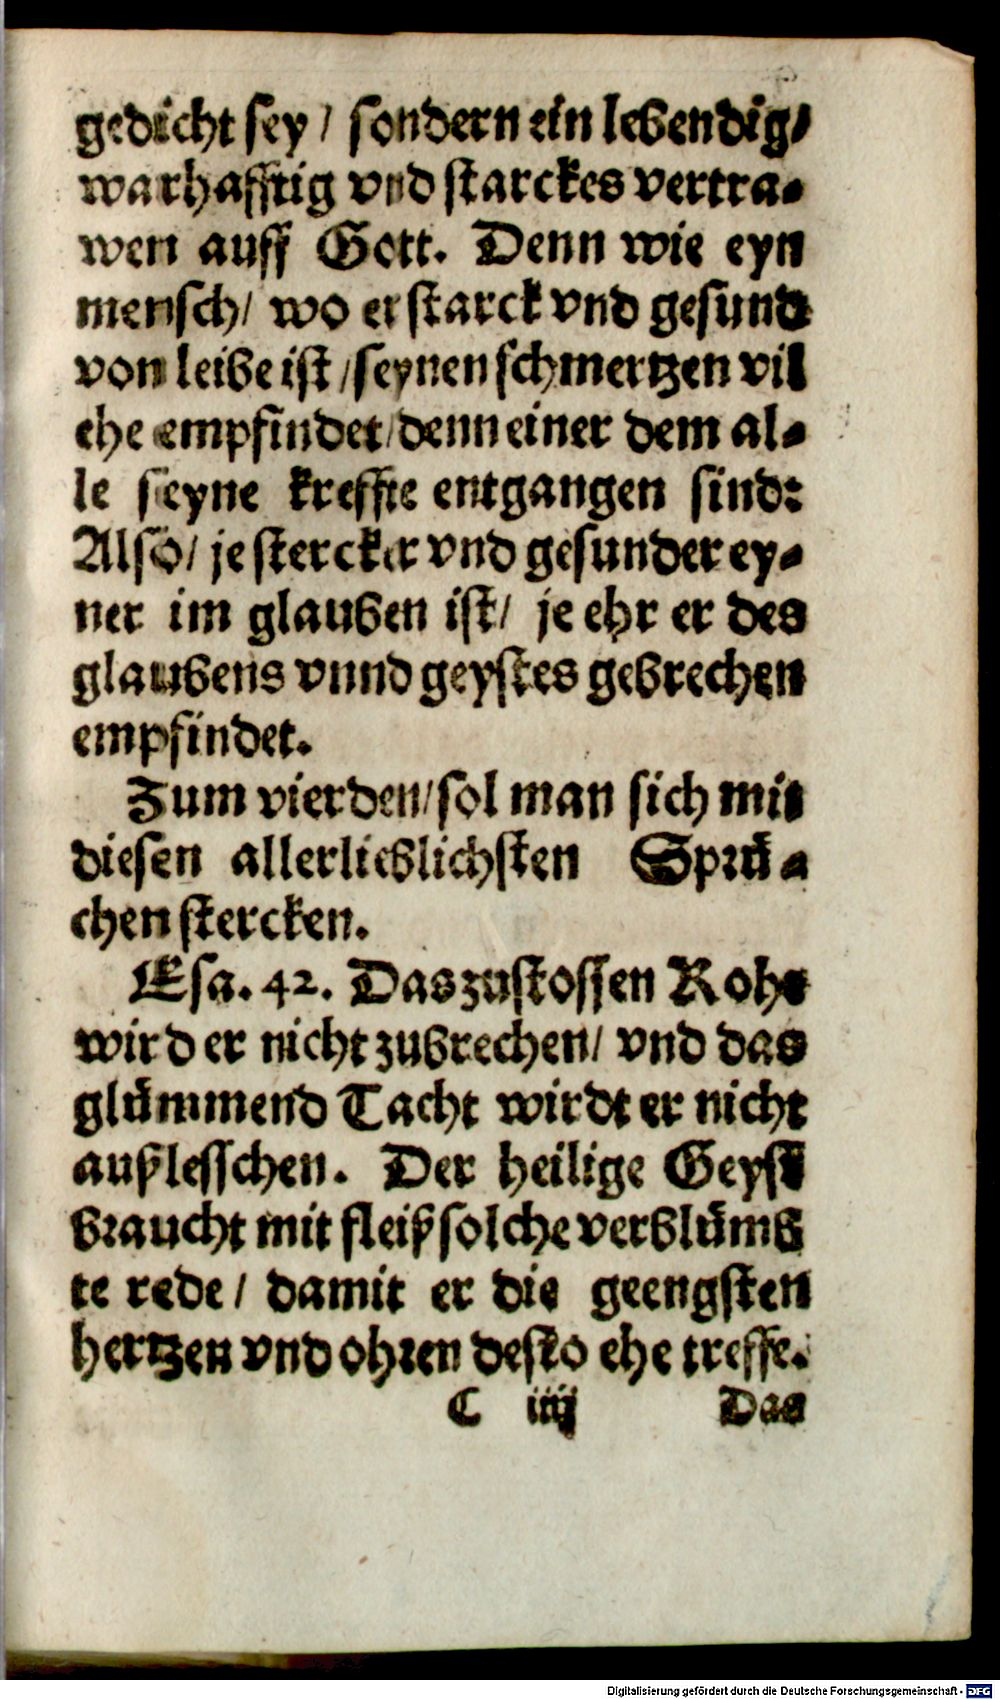 gedicht sey / sondern ein lebendig/
warhafftig vnd starckes vertra-
wen auff Gott. Denn wie eyn
mensch/ wo er starck vnd gesund
von leibe ist /seynen schmertzen vil
ehe empfindet/denn einer dem al-
le seyne kreffte entgangen sind:
Also/ je stercker vnd gesunder ey-
ner im glauben ist/ je ehr er des
glaubens vnnd geystes gebrechen
empfindet.
Zum vierden/sol man sich mit
diesen allerlieblichsten Sprü-
chen stercken.
Esa. 42. Das zustossen Rohr
wird er nicht zubrechen/ vnd das
glümmend Tacht wirdt er nicht
außlesschen. Der heilige Geyst
braucht mit fleiß solche verblümb
te rede/ damit er die geengsten
hertzen vnd ohren desto ehe treffe.
C iiij Das
Digitalisierung gefördert durch die Deutsche Forschungsgemeinschaft - DFG